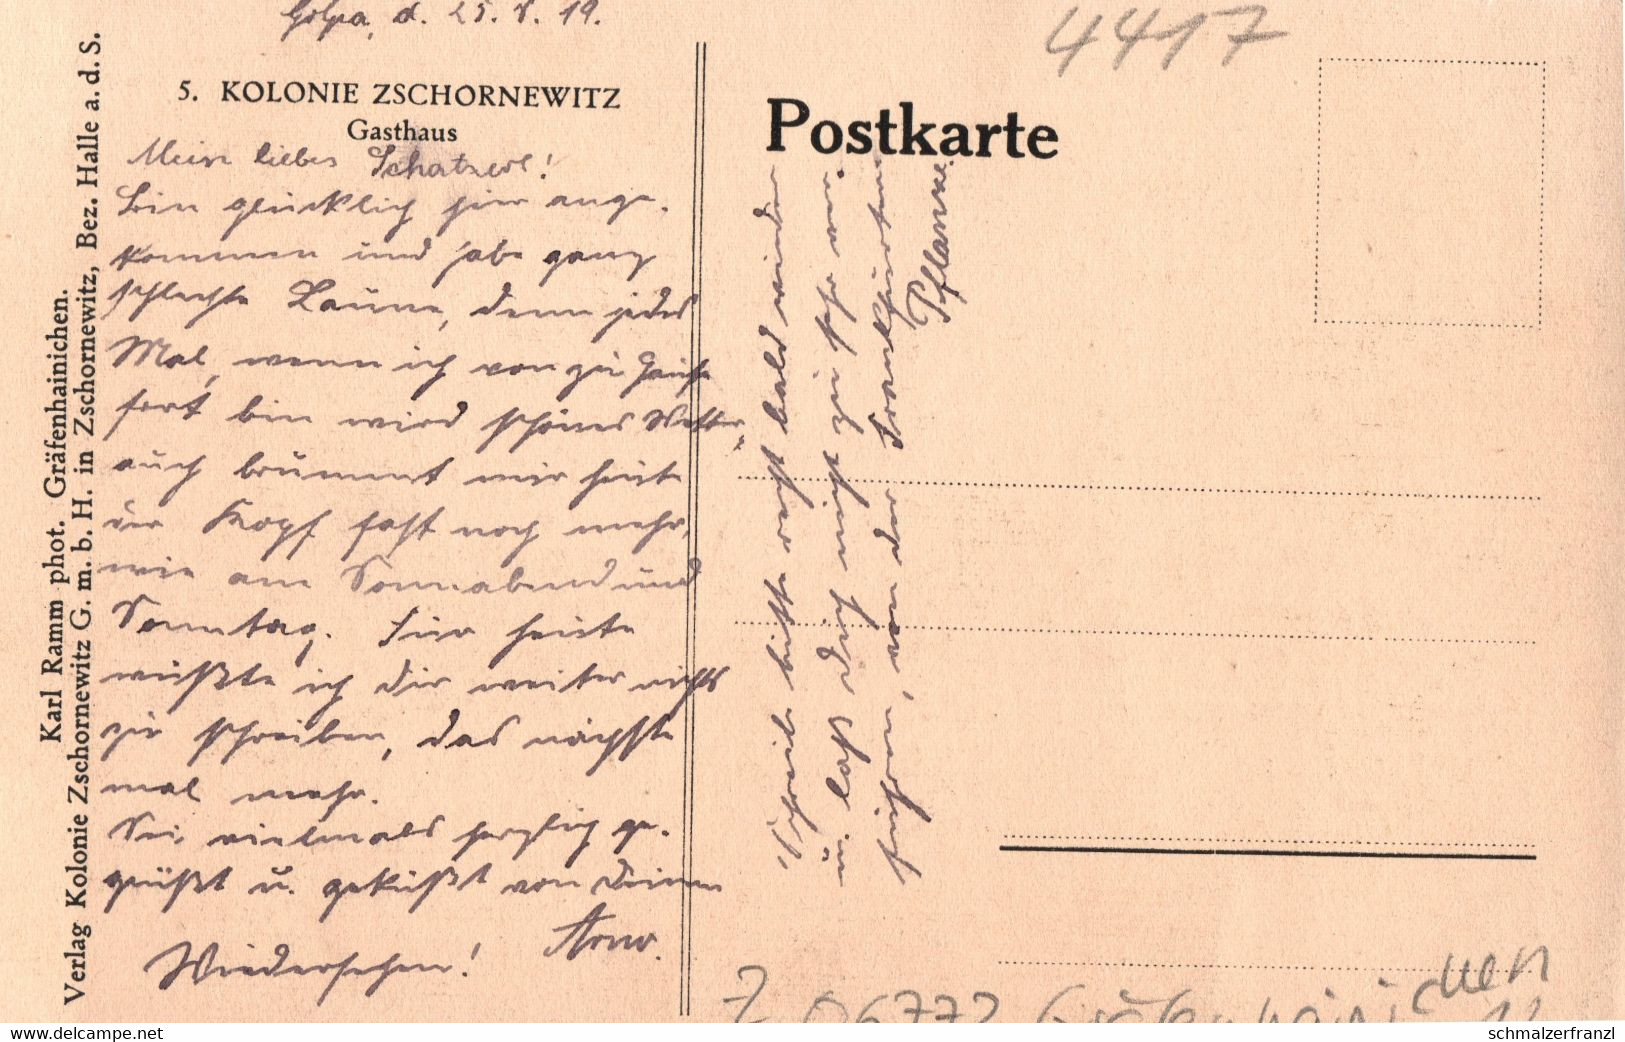 Golpa, d. 25. 8. 19.
5. KOLONIE ZSCHORNEWITZ
Gasthaus
Mein liebes Schatzerl!
Bin glücklich hier ange-
kommen und habe ganz
schlechte Laune, denn jedes
Mal, wenn ich von zu Hause
fort bin wird schönes Wetter,
auch brummt mir heute
der Kopf fast noch mehr,
wie am Sonnabend und
Sonntag. Für heute
wüßte ich dir weiter nichts
zu schreiben, das nächste
mal mehr.
Sei vielmals herzlich ge-
grüßt u. geküßt von Deinem
Arno.
Wiedersehen!
Karl Ramm phot. Gräfenhainichen.
Verlag Kolonie Zschornewitz G. m. b. H. in Zschornewitz, Bez. Halle a. d. S.
Postkarte
Schreib bitte recht bald wieder
u. laß dich nicht zu sehr ver-
führen, von der Frankfurter
Pflanze.
4417
Z 06772 Gräfenhainichen
www.delcampe.net
schmalzerfranzl